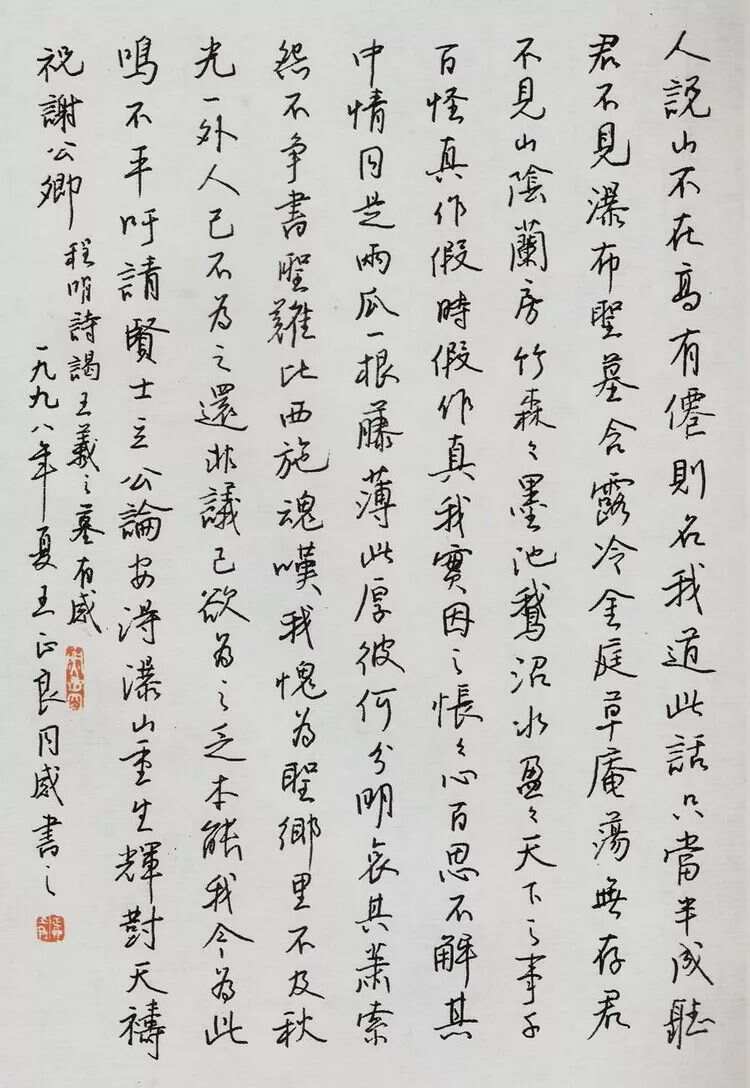 人説山不在高有僊則名我道此話只當半成聽
君不見瀑布聖墓含露冷金庭草庵蕩無存君
不見山陰蘭房竹森〻墨池鵝沼水盈〻天下之事千
百怪真作假時假作真我實因之悵〻心百思不解其
中情同是兩瓜一根藤薄此厚彼何分明哀其蕭索
怨不争書聖難比西施魂嘆我愧為聖鄉里不及秋
光一外人己不為之還非議己欲為之乏本能我今為此
鳴不平吁請賢士立公論安得瀑山重生輝對天禱
祝謝公卿
程明詩謁王羲之墓有感
一九九八年夏王正良同感書之